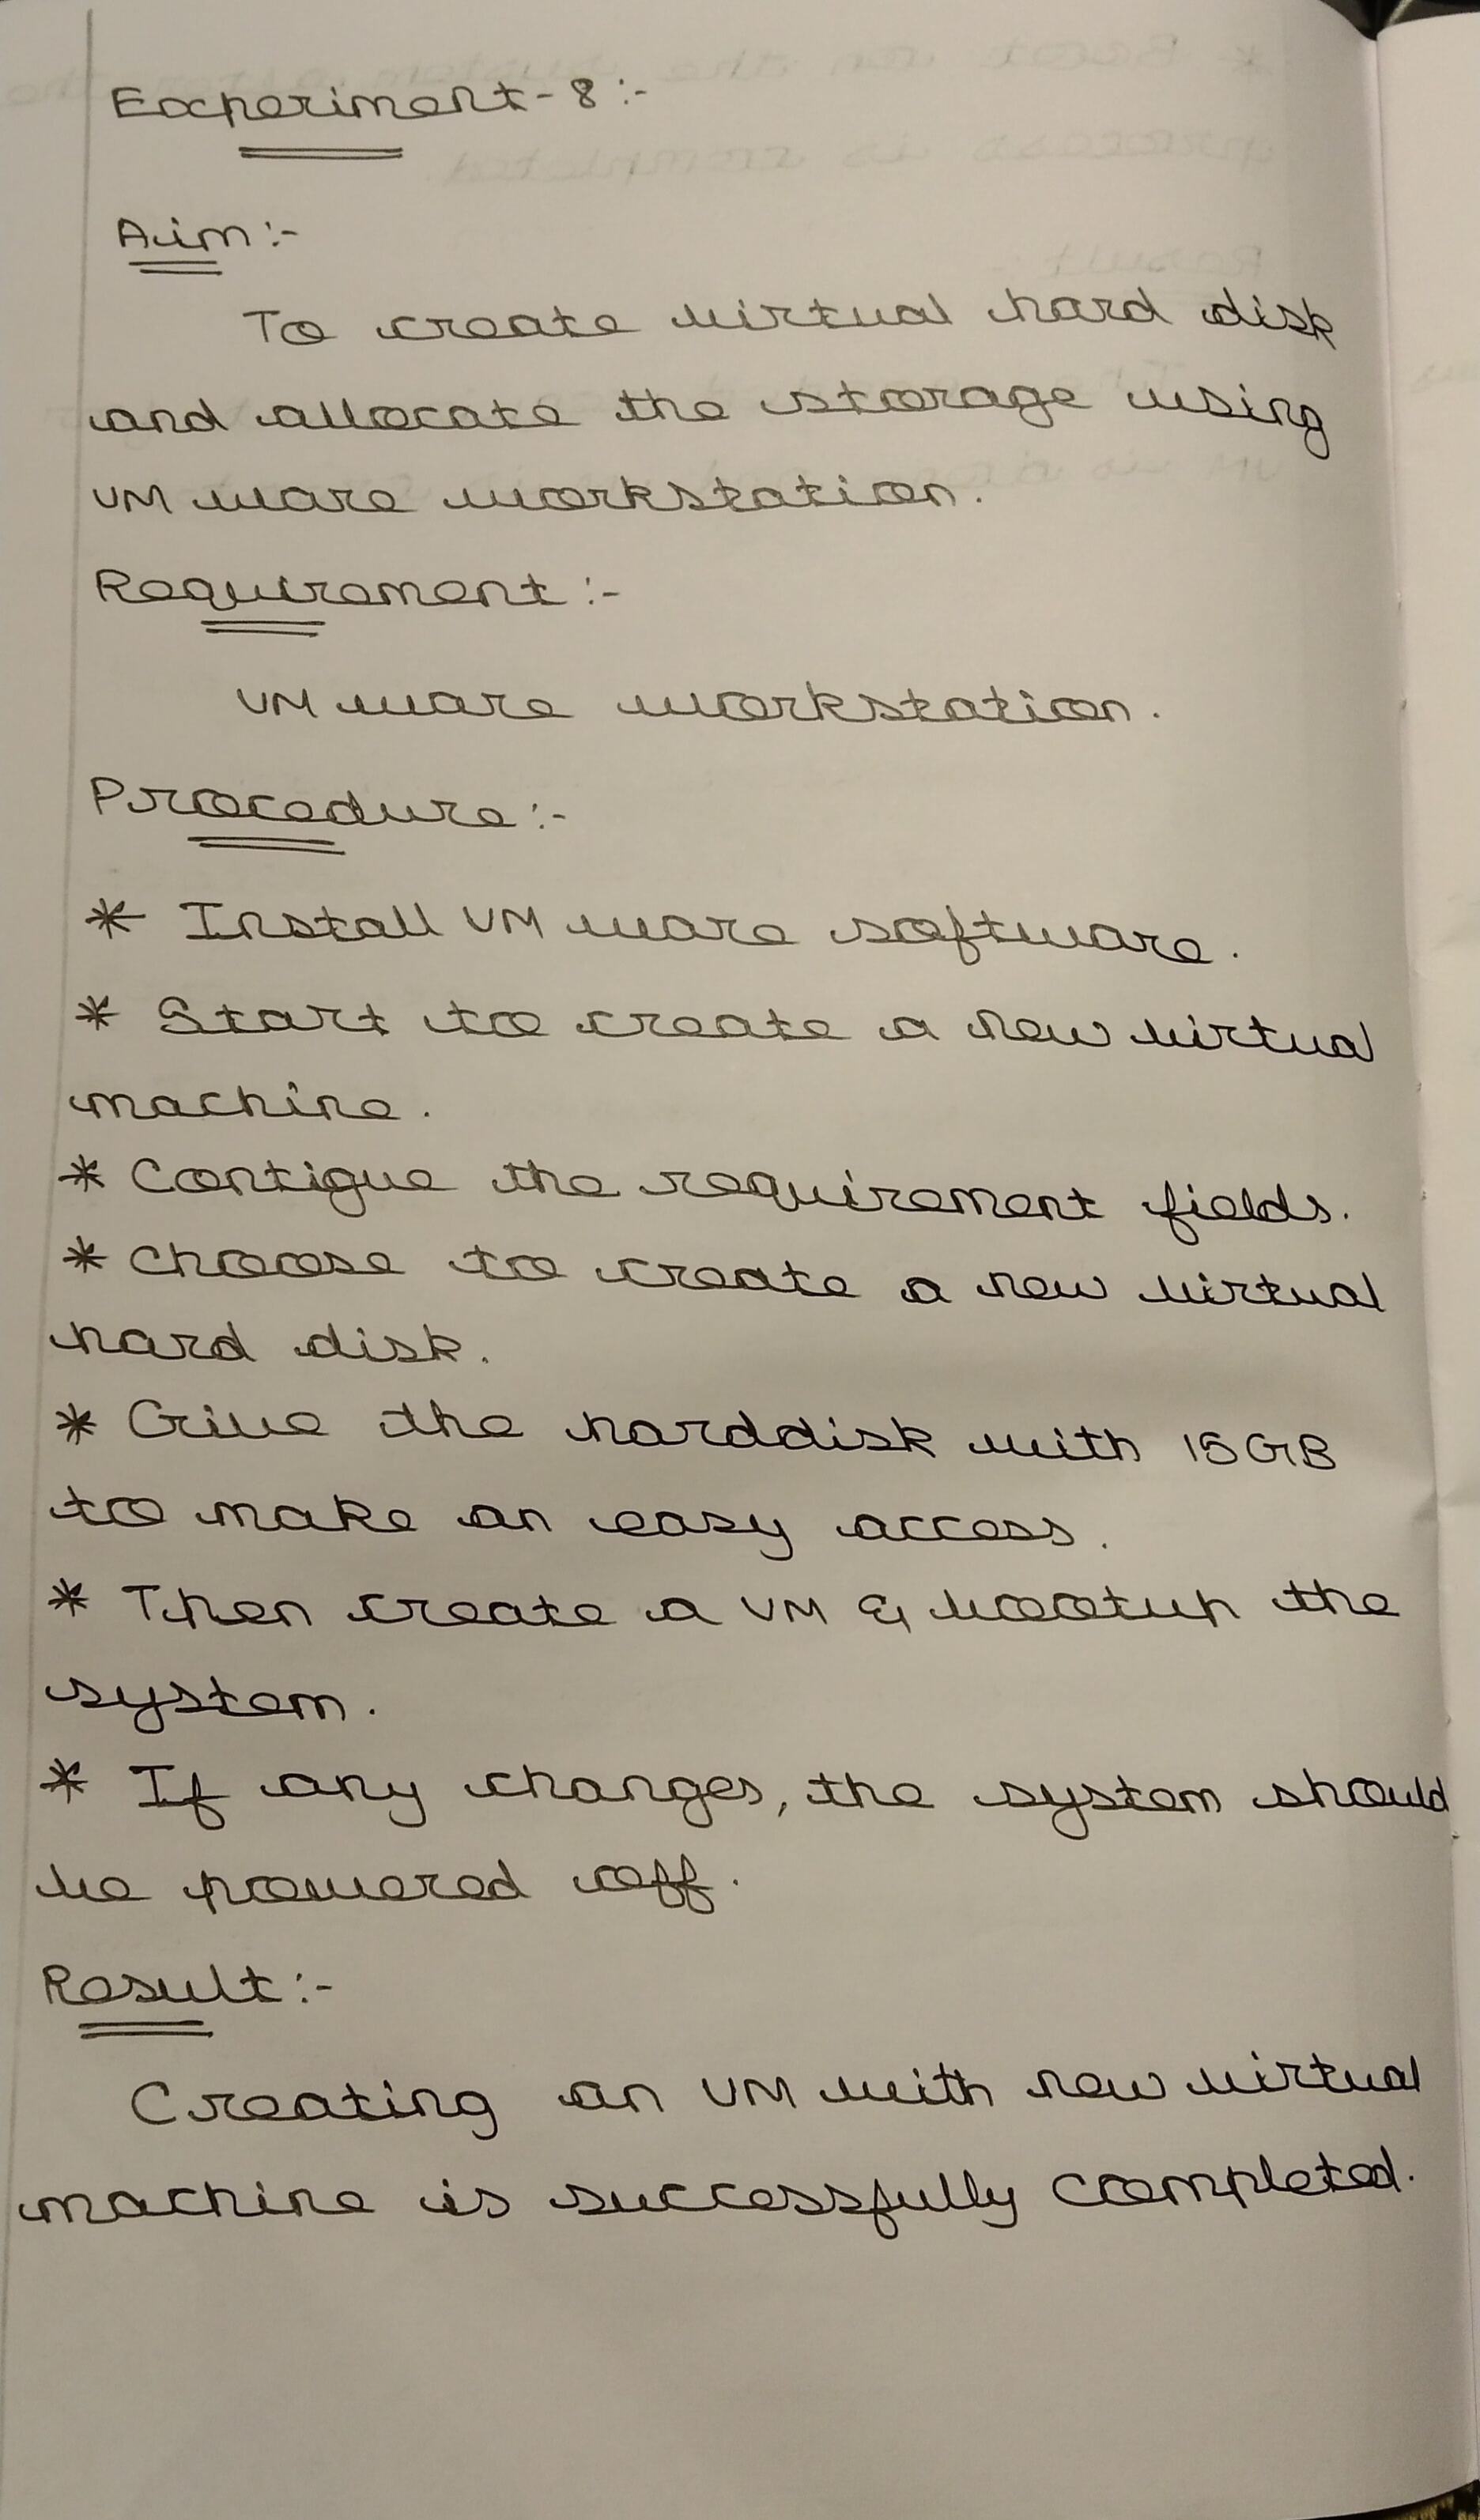 Experiment-8:-
Aim:-
To create virtual hard disk
and allocate the storage using
VM ware workstation.
Requirement:-
VM ware workstation.
Procedure:-
* Install VM ware software.
* Start to create a new virtual
machine.
* Contigue the requirement fields.
* Choose to create a new virtual
hard disk.
* Give the harddisk with 15GB
to make an easy access.
* Then create a VM & bootup the
system.
* If any changes, the system should
be powered off.
Result:-
Creating an VM with new virtual
machine is successfully completed.